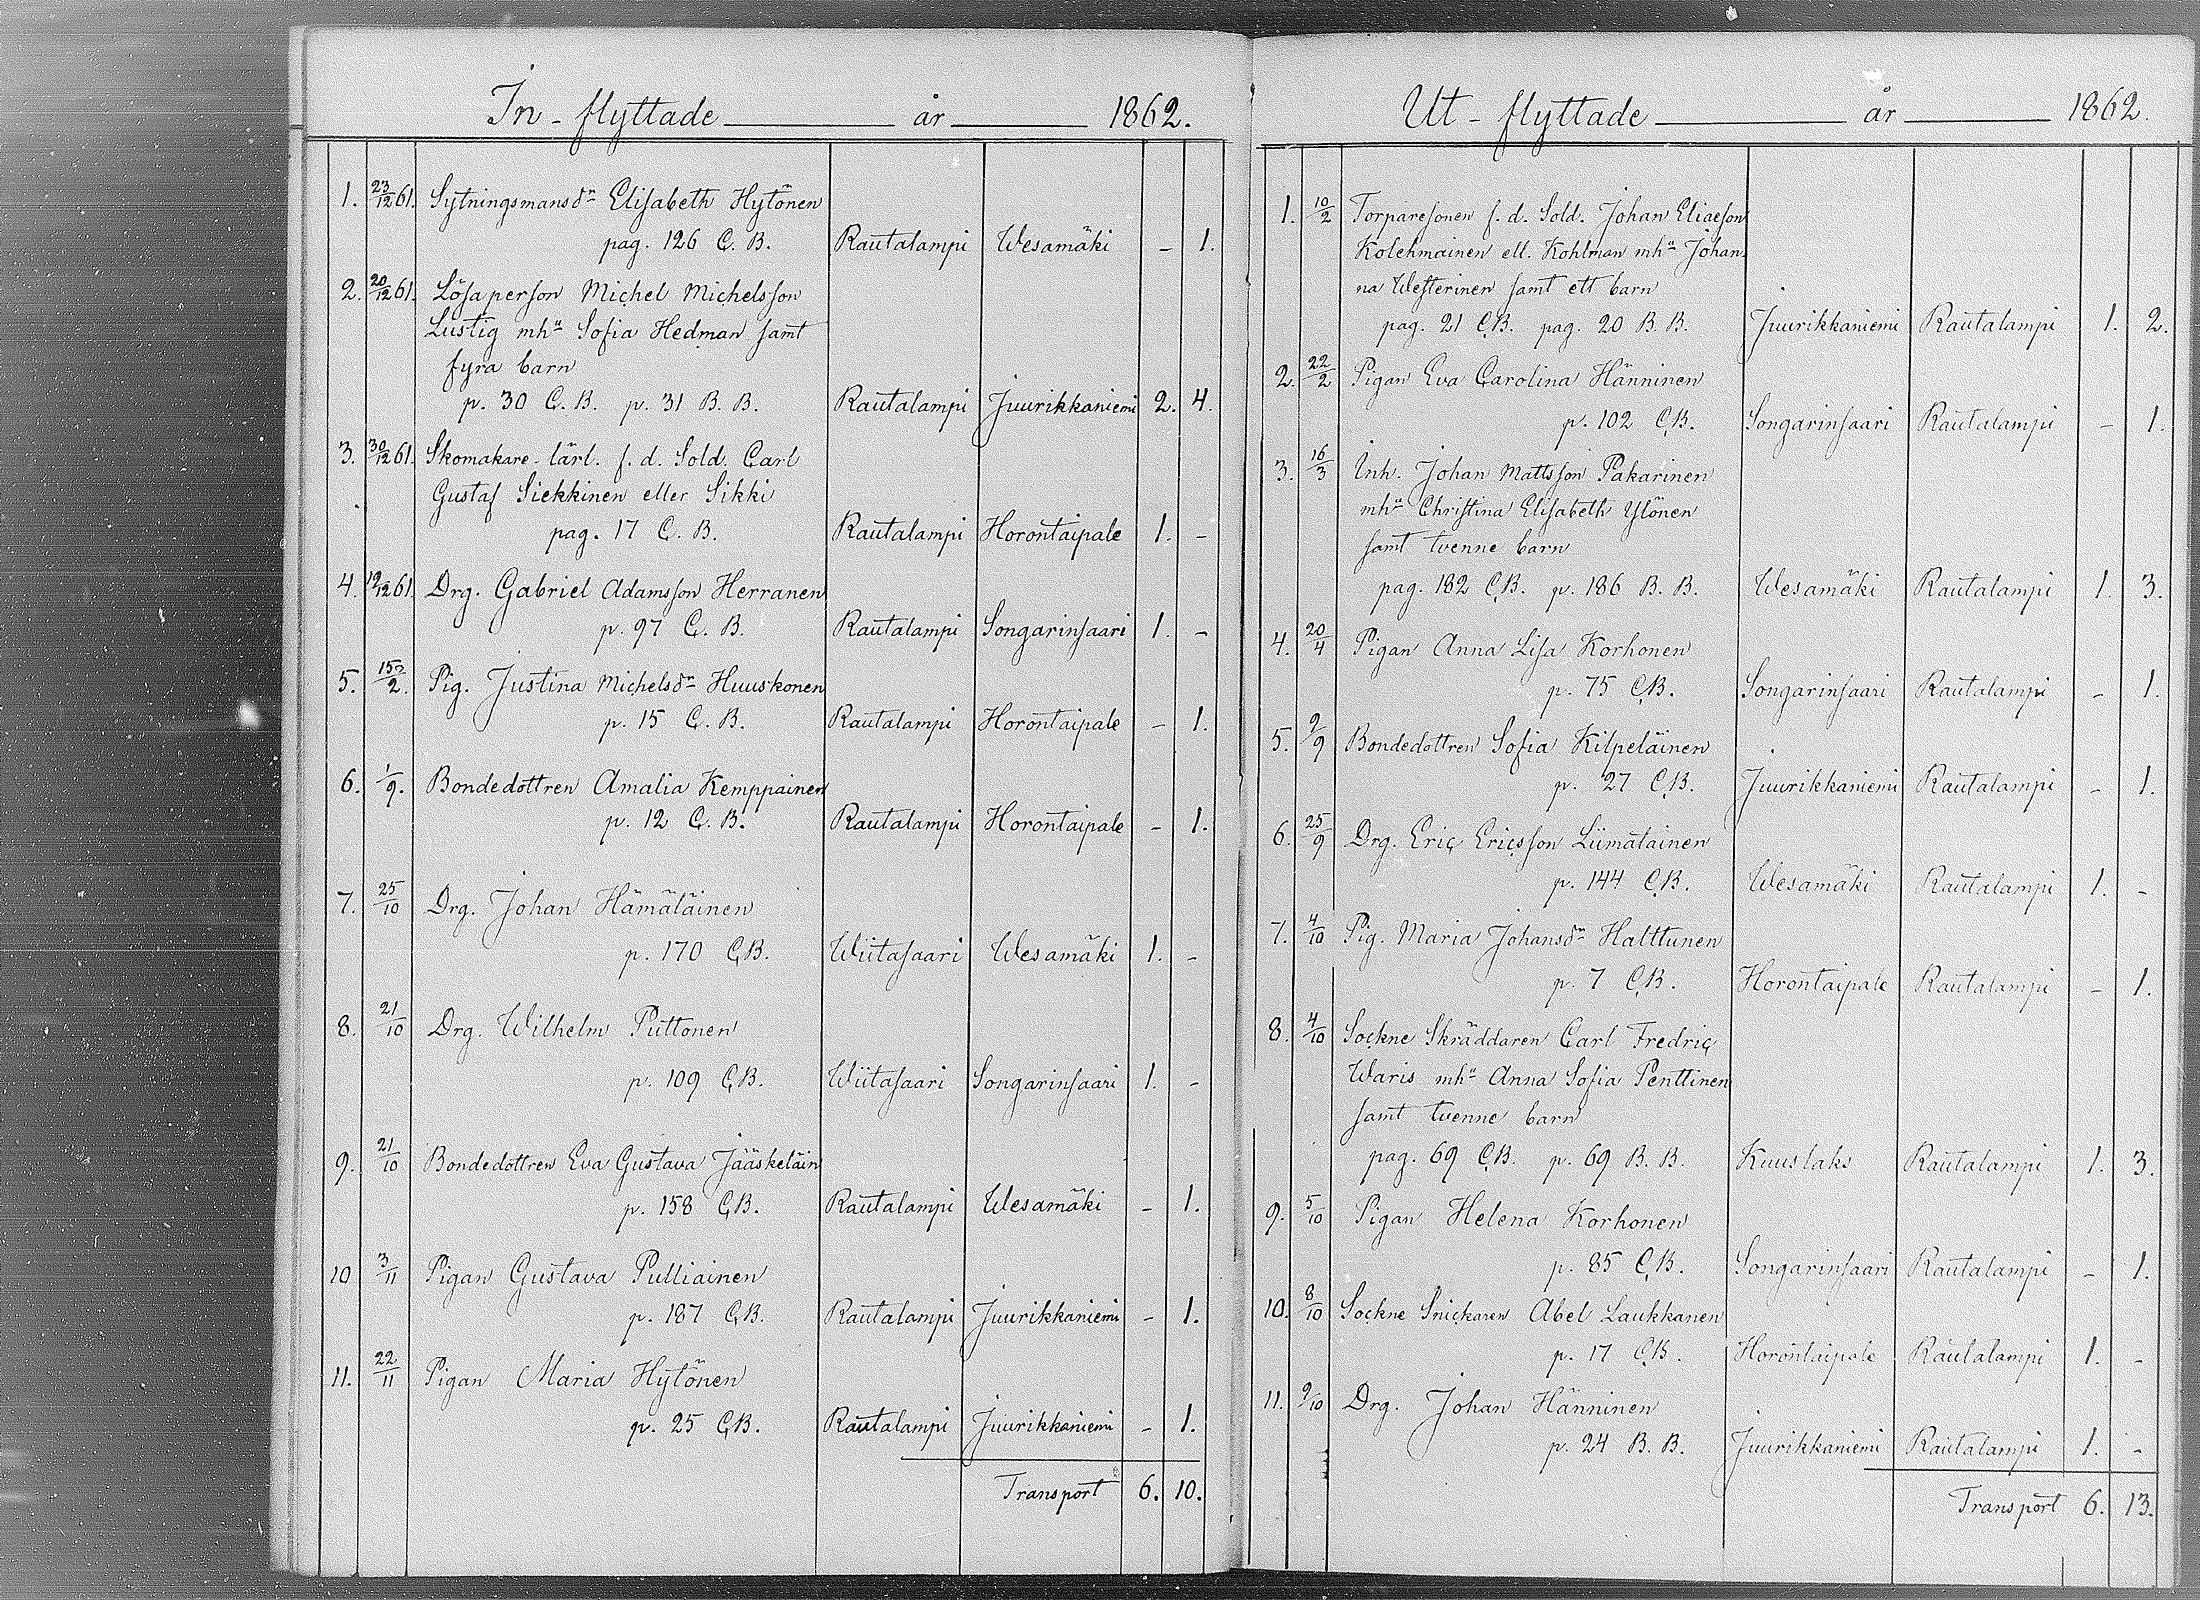 In - flyttade år 1862.
1. 23/12 61. Sytningsmansdr Elisabeth Hytönen
pag. 126 C. B. Rautalampi Wesamäki - 1.
2. 20/12 61. Lösaperson Michel Michelsson
Lustig mhu Sofia Hedman samt
fyra barn
p. 30 C. B. p. 31 B. B. Rautalampi Juurikkaniemi 2. 4.
3. 30/12 61. Skomakare lärl. f. d. Sold. Carl
Gustaf Siekkinen eller Sikki
pag. 17 C. B. Rautalampi Horontaipale 1. -
4. 12/12 61. Drg. Gabriel Adamsson Herranen
p. 97 C. B. Rautalampi Songarinsaari 1. -
5. 2. Pig. Justina Michelsdr Huuskonen
p. 15 C. B. Rautalampi Horontaipale - 1.
6. 1/9. Bondedottren Amalia Kemppainen
p. 12 C. B. Rautalampi Horontaipale - 1.
7. 25/10 Drg. Johan Hämäläinen
p. 170 C.B. Wiitasaari Wesamäki 1. -
8. 21/10 Drg. Wilhelm Puttonen
p. 109 C.B. Wiitasaari Songarinsaari 1. -
9. 21/10 Bondedottren Eva Gustava Jääskeläin
p. 158 C.B. Rautalampi Wesamäki - 1.
10 3/11 Pigan Gustava Pulliainen
p. 187 C.B. Rautalampi Juurikkaniemi - 1.
11. 22/11 Pigan Maria Hytönen
p. 25 C.B. Rautalampi Juurikkaniemi - 1.
Transport 6. 10.
Ut - flyttade år 1862.
1. 10/2 Torparesonen f. d. Sold. Johan Eliaeson
Kolehmainen ell. Kohlman mhu Johan-
na Westerinen samt ett barn
pag. 21 C.B. pag. 20 B. B. Juurikkaniemi Rautalampi 1. 2.
2. 22/2 Pigan Eva Carolina Hänninen
p. 102 C.B. Songarinsaari Rautalampi - 1.
3. 16/3 Inh. Johan Mattsson Pakarinen
mhu Christina Elisabeth Ylönen
samt tvenne barn
pag. 182 C.B. p. 186 B. B. Wesamäki Rautalampi 1. 3.
4. 20/4 Pigan Anna Lisa Korhonen
p. 75 C.B. Songarinsaari Rautalampi - 1.
5. 9/9 Bondedottren Sofia Kilpeläinen
p. 27 C.B. Juurikkaniemi Rautalampi - 1.
6. 25/9 Drg. Eric Ericsson Liimatainen
p. 144 C.B. Wesamäki Rautalampi 1. -
7. 4/10 Pig. Maria Johansdr Halttunen
p. 7 C.B. Horontaipale Rautalampi - 1.
8. 4/10 Sockne Skräddaren Carl Fredric
Waris mhu Anna Sofia Penttinen
samt tvenne barn
pag. 69 C.B. p. 69 B. B. Kuuslaks Rautalampi 1. 3.
9. 5/10 Pigan Helena Korhonen
p. 85 C.B. Songarinsaari Rautalampi - 1.
10. 8/10 Sockne Snickaren Abel Laukkanen
p. 17 C.B. Horontaipale Rautalampi 1. -
11. 9/10 Drg. Johan Hänninen
p. 24 B. B. Juurikkaniemi Rautalampi 1. -
Transport 6. 13.